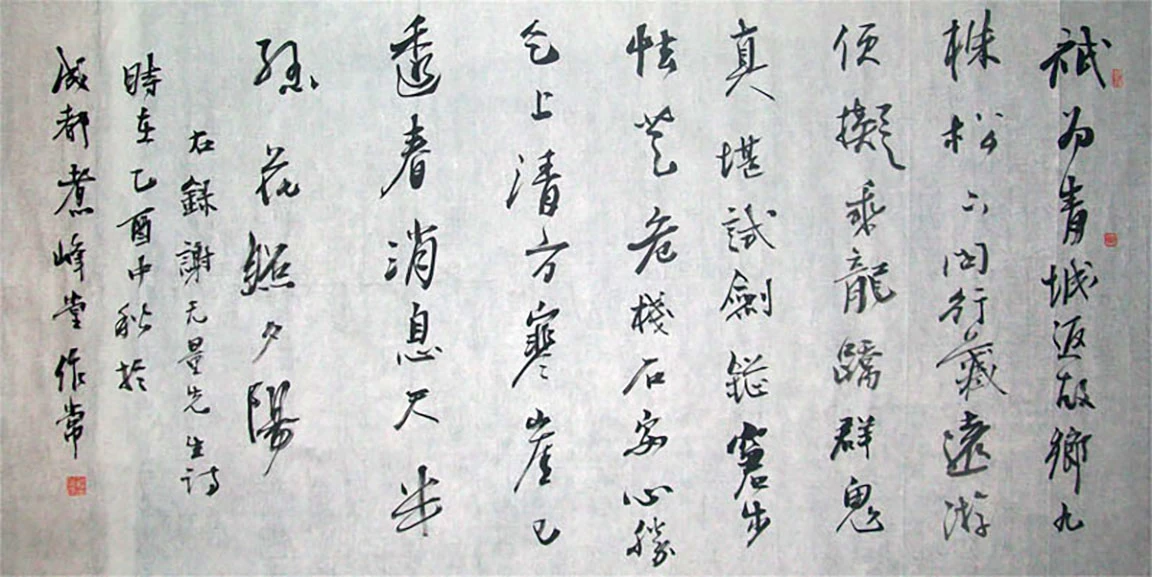 祗为青城返故鄉九
株松下问行藏遠游
便擬乘龍蹻群鬼
真堪試劍鋩窘步
怯登危棧石安心勝
乞上清方寒崖已
透春消息尺半
花照夕陽
右録謝无量先生詩
時在乙酉中秋於
成都煮峰堂作常